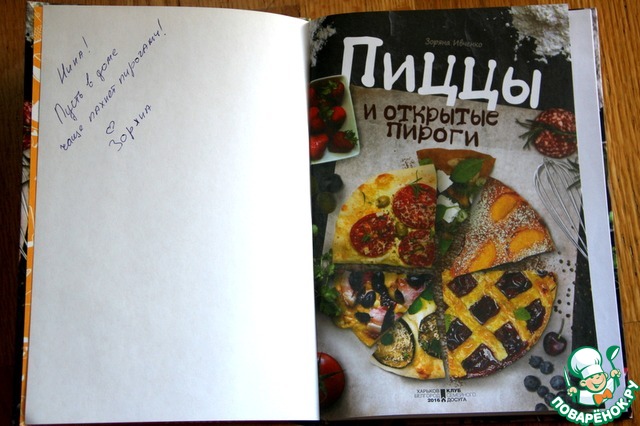 Инна!
Пусть в доме
чаще пахнет пирогами!
Зоряна
Зоряна Ивченко
Пиццы
и открытые
пироги
ХАРЬКОВ КЛУБ
БЕЛГОРОД СЕМЕЙНОГО
2016 ДОСУГА
ПОВАРЁНОК.РУ